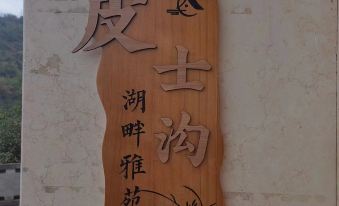 皮士沟
湖畔雅苑